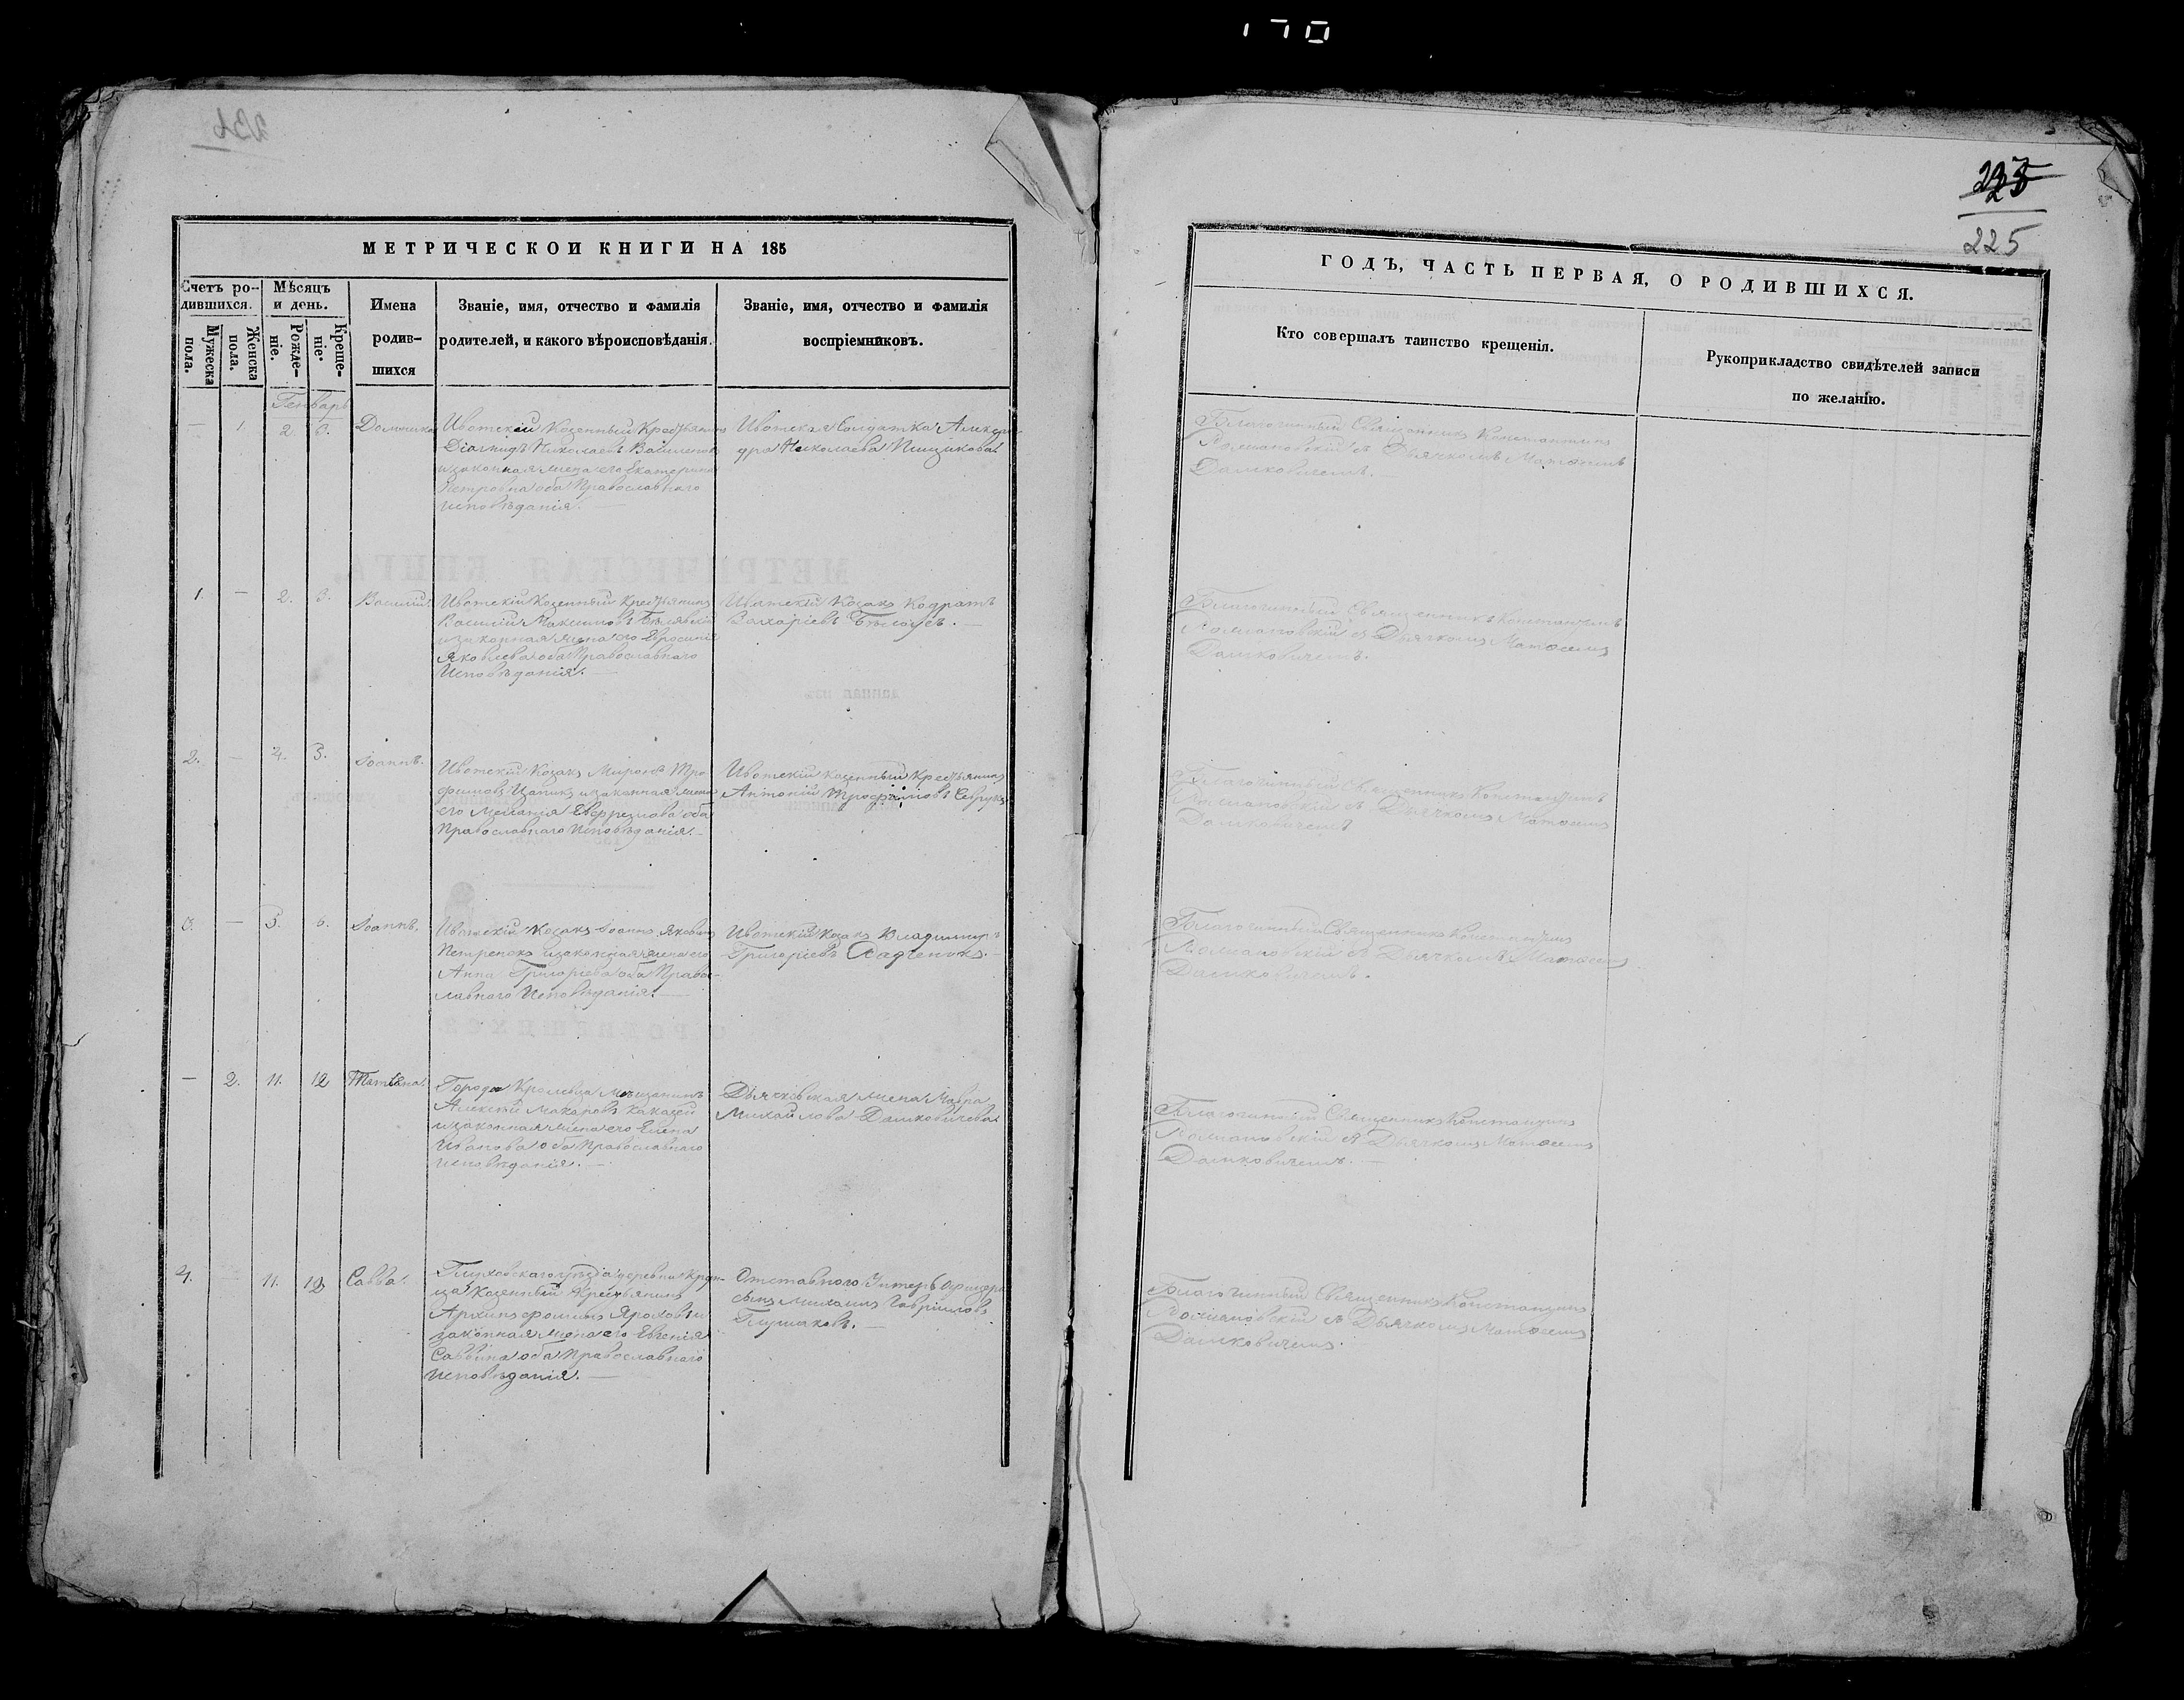 170
225
МЕТРИЧЕСКОЙ КНИГИ НА 185
Счетъ ро-
дившихся.
Мѣсяцъ
и день.
Мужеска
пола.
Женска
пола.
Рожде-
ніе.
Креще-
ніе.
Имена
родив-
шихся
Званіе, имя, отчество и фамилія
родителей, и какого вѣроисповѣданія.
Званіе, имя, отчество и фамилія
воспріемниковъ.
Генварь
— 1. 2. 3.
Ивотскій Козенный Крестьянинъ
Николаевъ
и законная жена его Екатерина
Петровна оба Православнаго
исповѣданія. —
Ивотска Солдатка Алексан
дра Николаева Пищикова
1. — 2. 3. Василій.
Ивотскій Козенный Крестьянинъ
Василій Максимовъ
и законная жена его Евросинія
Яковлева оба Православнаго
Исповѣданія. —
Ивотскій Козакъ Кодратъ
Захаріевъ Бѣлоусъ. —
2. — 4. 5. Іоаннъ.
Ивотскій Козакъ Миронъ Тро
фимовъ Цапикъ и законная жена
его Меланія оба
Православнаго Исповѣданія. —
Ивотскій Козенный Крестьянинъ
Антоній Трофимовъ Саврукъ
3. — 5. 6. Іоаннъ.
Ивотскій Козакъ Іоаннъ Яковлевъ
Петренокъ и законная жена его
Анна Григорьева оба Правос-
лавнаго Исповѣданія. —
Ивотскій Козакъ Владимиръ
Григоріевъ Радченокъ. —
— 2. 11. 12 Татіана.
Города Кролевца Мѣщанинъ
Алексѣй Макаровъ
и законная жена его Елена
Иванова оба Православнаго
исповѣданія. —
Дьячковская жена Мавра
Михайлова Дашковичева
4. — 11. 12 Савва.
Глуховскаго уѣзда деревни Круп-
ца Козенный Крестьянинъ
Архипъ Фоминъ и
законная жена его Евгенія
Саввина оба Православнаго
Исповѣданія. —
Отставного Унтеръ Офицера
сынъ Михаилъ Гавріиловъ
Глушаковъ. —
ГОДЪ, ЧАСТЬ ПЕРВАЯ, О РОДИВШИХСЯ.
Кто совершалъ таинство крещенія.
Рукоприкладство свидѣтелей записи
по желанію.
Благочинный Священникъ Константинъ
съ Дьячкомъ Матѳеемъ
Дашковичемъ.
Благочинный Священникъ Константинъ
съ Дьячкомъ Матѳеемъ
Дашковичемъ.
Благочинный Священникъ Константинъ
съ Дьячкомъ Матѳеемъ
Дашковичемъ
Благочинный Священникъ Константинъ
съ Дьячкомъ Матѳеемъ
Дашковичемъ.
Благочинный Священникъ Константинъ
съ Дьячкомъ Матѳеемъ
Дашковичемъ. —
Благочинный Священникъ Константинъ
съ Дьячкомъ Матѳеемъ
Дашковичемъ.